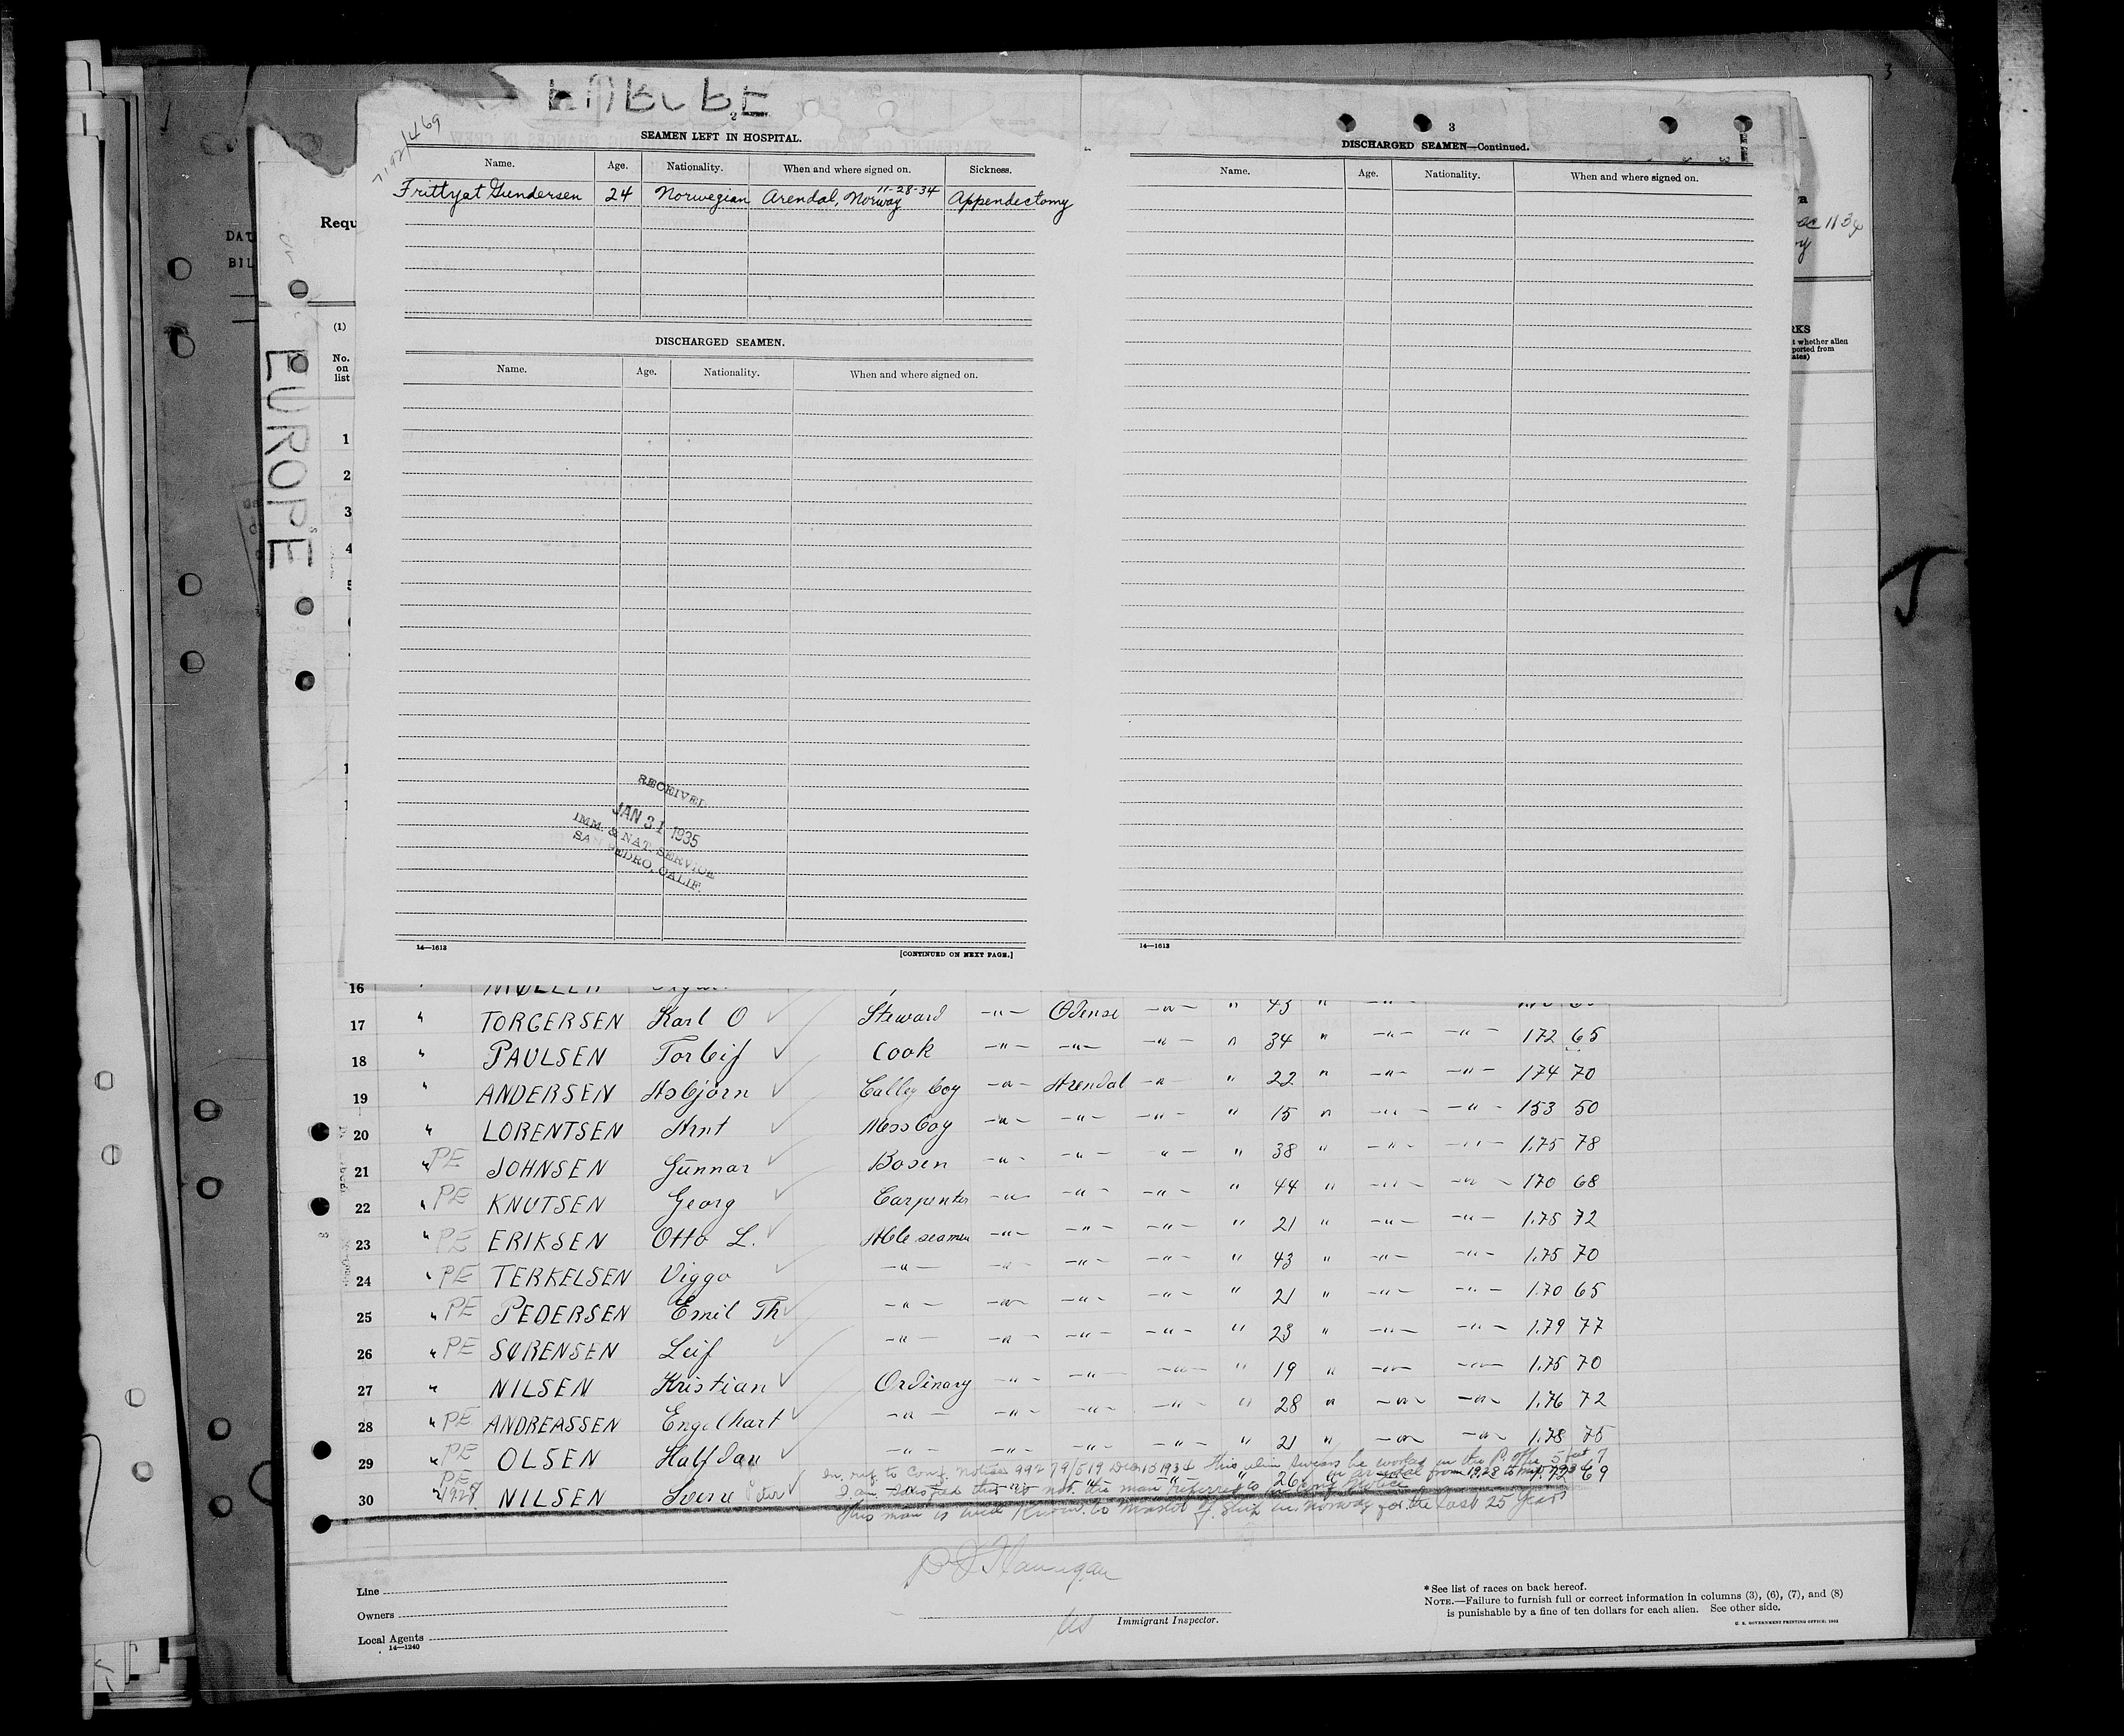 EUROPE
71921/469
2
SEAMEN LEFT IN HOSPITAL.
Name. Age. Nationality. When and where signed on. Sickness.
Frittyat Gundersen 24 Norwegian Arendal, Norway 11-28-34 Appendectomy
DISCHARGED SEAMEN.
Name. Age. Nationality. When and where signed on.
RECEIVED
JAN 31 1935
IMM. & NAT. SERVICE
SAN PEDRO, CALIF.
14—1613
[CONTINUED ON NEXT PAGE.]
3
DISCHARGED SEAMEN—Continued.
Name. Age. Nationality. When and where signed on.
14—1613
Requ
DAT
BIL
(1)
No. on list
1
2
3
4
5
RKS
t whether alien
ported from
ates)
16
17 " TORGERSEN Karl O Steward —"— Odense —"— " 43 " —"—
18 " PAULSEN Torleif Cook —"— —"— —"— " 34 " —"— —"— 172 65
19 " ANDERSEN Asbjørn Galley boy —"— Arendal —"— " 22 " —"— —"— 174 70
20 " LORENTSEN Arnt Messboy —"— —"— —"— " 15 " —"— —"— 153 50
21 " PE JOHNSEN Gunnar Bosen —"— —"— —"— " 38 " —"— —"— 1.75 78
22 " PE KNUTSEN Georg Carpenter —"— —"— —"— " 44 " —"— —"— 170 68
23 " PE ERIKSEN Otto L. Able seamen —"— —"— —"— " 21 " —"— —"— 1.75 72
24 " PE TERKELSEN Viggo —"— —"— —"— —"— " 43 " —"— —"— 1.75 70
25 " PE PEDERSEN Emil Th —"— —"— —"— —"— " 21 " —"— —"— 1.70 65
26 " PE SØRENSEN Leif —"— —"— —"— —"— " 23 " —"— —"— 1.79 77
27 " NILSEN Kristian Ordinary —"— —"— —"— " 19 " —"— —"— 1.75 70
28 " PE ANDREASSEN Engelhart —"— —"— —"— —"— " 28 " —"— —"— 1.76 72
29 " PE OLSEN Halfdan —"— —"— —"— —"— " 21 " —"— —"— 1.78 75
30 " PE NILSEN Sverre Peter 26 69
In ref. to Conf. Notice 99279/519 Dec 10 1934 This alien swears he worked in the P. Office in Arendal from 1928 to
I am satisfied this is not the man referred to in Conf Notice
This man is well known to Master of Ship in Norway for the last 25 years
Line
Owners
Local Agents
14—1240
Immigrant Inspector.
* See list of races on back hereof.
NOTE.—Failure to furnish full or correct information in columns (3), (6), (7), and (8)
is punishable by a fine of ten dollars for each alien. See other side.
U. S. GOVERNMENT PRINTING OFFICE: 1932